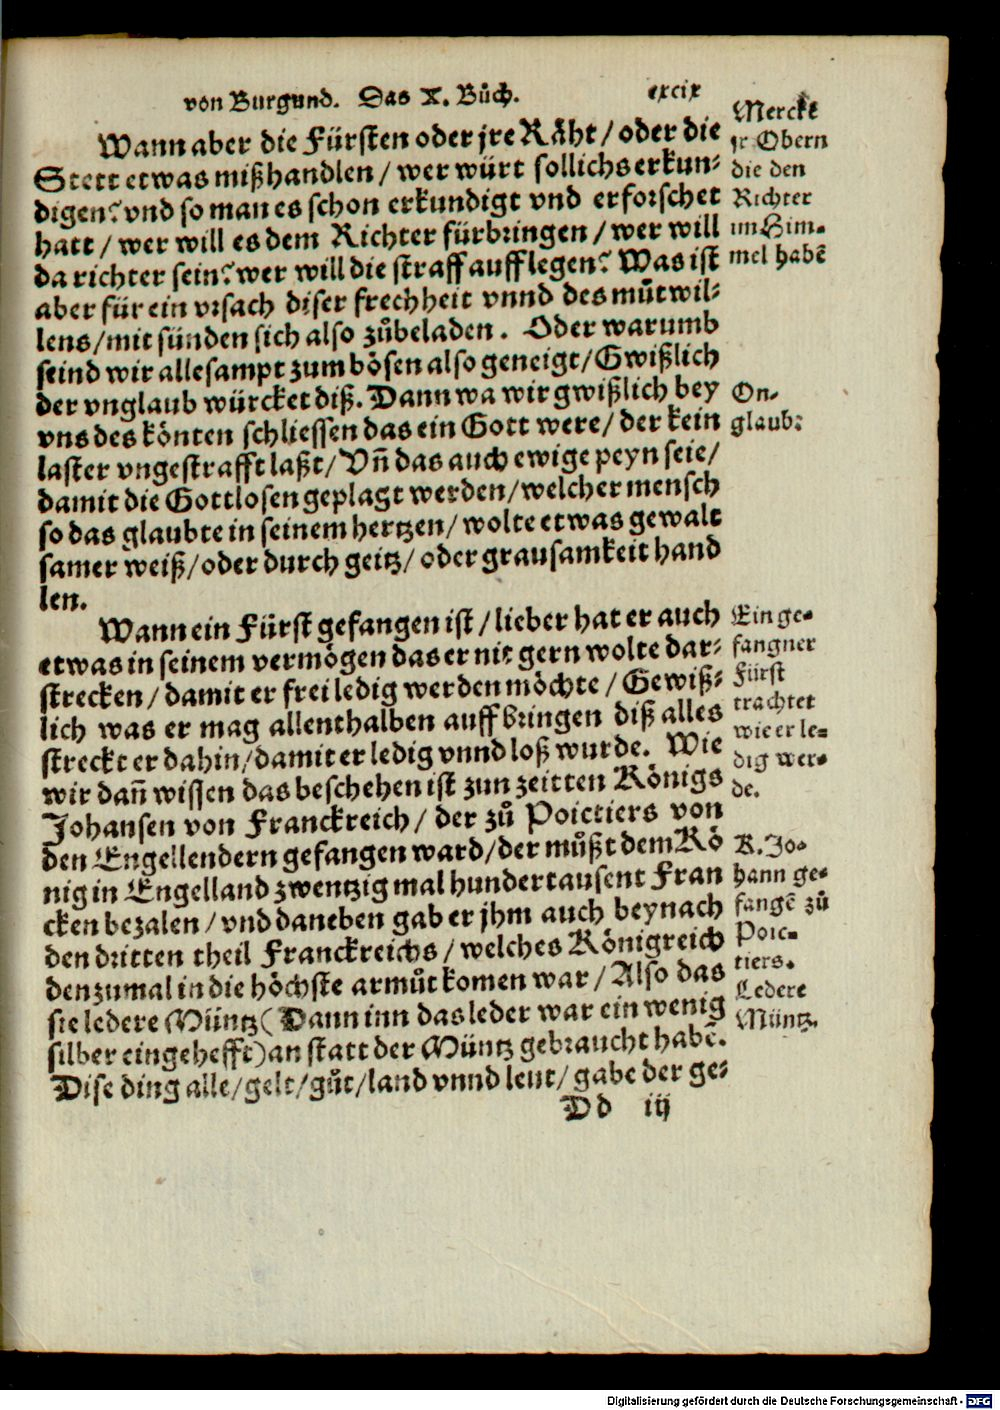 von Burgund. Das X. Bůch.
cxcix
Wann aber die Fürsten oder jre Räht/ oder die
Stett etwas mißhandlen/ wer würt sollichs erkun-
digen? vnd so man es schon erkundigt vnd erforschet
hatt/ wer will es dem Richter fürbringen/ wer will
da richter sein? wer will die straff aufflegen? Was ist
aber für ein vrsach diser frechheit vnnd des můtwil-
lens/ mit sünden sich also zůbeladen. Oder warumb
seind wir alle sampt zum bösen also geneigt/ Gwißlich
der vnglaub würcket diß. Dann wa wir gwißlich bey
vns des könten schliessen das ein Gott were/ der kein
laster vngestrafft laßt/ Vñ das auch ewige peyn seie/
damit die Gottlosen geplagt werden/ welcher mensch
so das glaubte in seinem hertzen/ wolte etwas gewalt
samer weiß/ oder durch geitz/ oder grausamkeit hand
len.
Wann ein Fürst gefangen ist/ lieber hat er auch
etwas in seinem vermögen das er nit gern wolte dar-
strecken/ damit er frei ledig werden möchte/ Gewiß-
lich was er mag allenthalben auff bringen diß alles
streckt er dahin/ damit er ledig vnnd loß wurde. Wie
wir dañ wissen das beschehen ist zun zeitten Königs
Johansen von Franckreich/ der zů Poictiers von
den Engellendern gefangen ward/ der můßt dem Kö
nig in Engelland zwentzig mal hundert tausent Fran
cken bezalen/ vnd daneben gab er jhm auch beynach
den dritten theil Franckreichs/ welches Königreich
denzumal in die höchste armůt komen war/ Also das
sie ledere Müntz (Dann inn das leder war ein wenig
silber eingehefft) an statt der Müntz gebraucht habē.
Dise ding alle/ gelt/ gůt/ land vnnd leut/ gabe der ge-
Dd iij
Mercke
jr Obern
die den
Richter
im Him-
mel habē
On-
glaub:
Ein ge-
fangner
Fürst
trachtet
wie er le-
dig wer-
de.
K. Jo-
hann ge-
fangē zů
Poic-
tiers.
Ledere
Müntz.
Digitalisierung gefördert durch die Deutsche Forschungsgemeinschaft - DFG